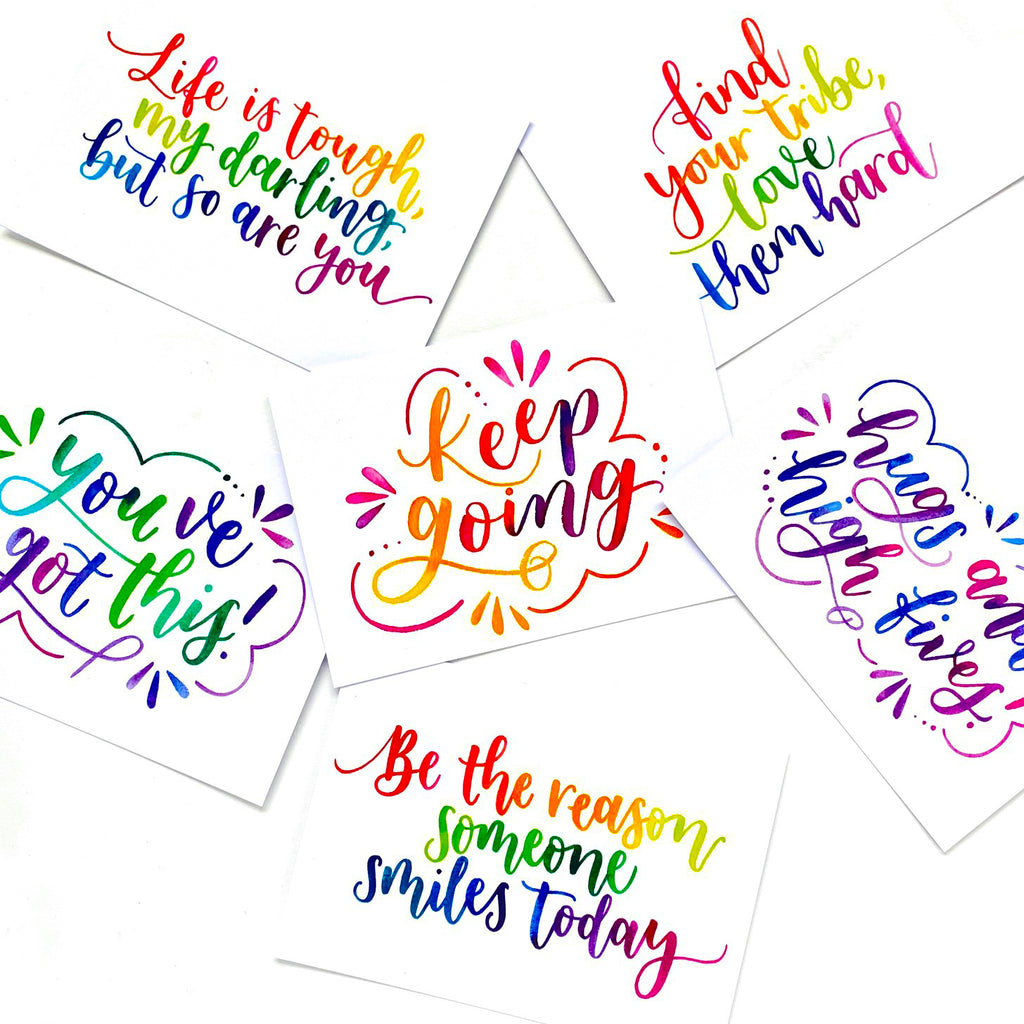 Life is tough,
my darling,
but so are you
find
your tribe,
love
them hard
you've
got this!
keep
going
hugs and
high fives!
Be the reason
someone
smiles today